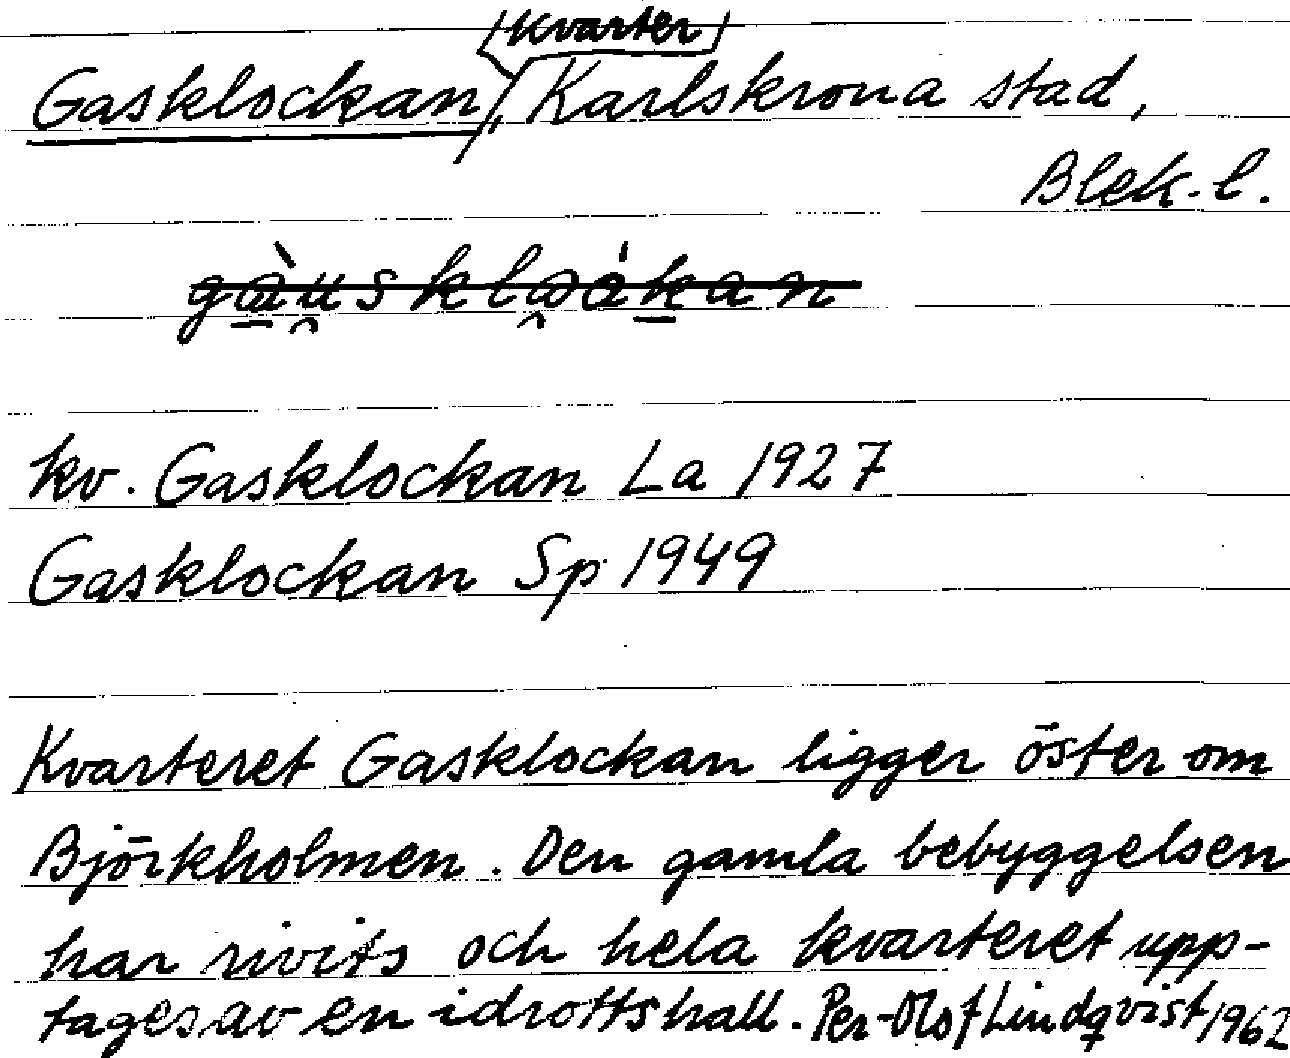 kvarter
Gasklockan, Karlskrona stad,
Blek. l.
kv. Gasklockan La 1927
Gasklockan Sp 1949
Kvarteret Gasklockan ligger öster om
Björkholmen. Den gamla bebyggelsen
har rivits och hela kvarteret upp-
tages av en idrottshall. Per-Olof Lindqvist 1962